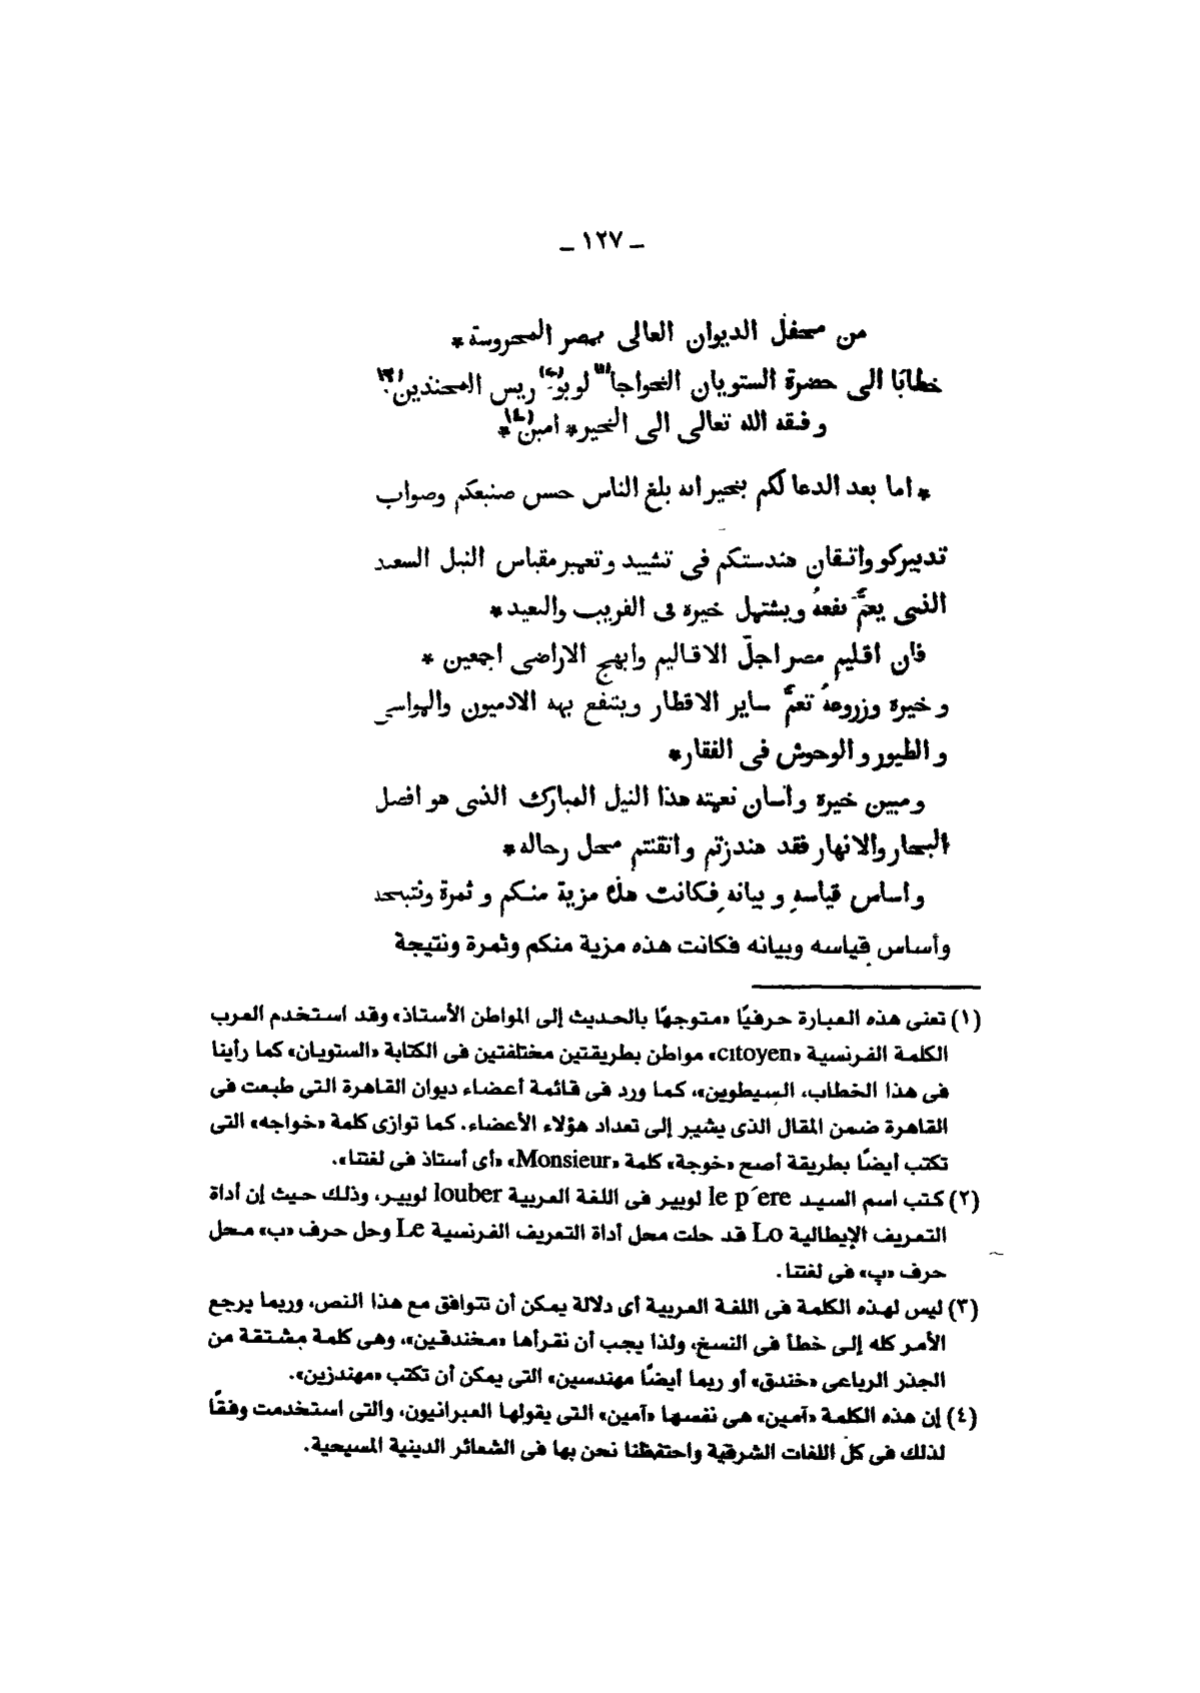 ـ ١٢٧ ـ
من محفل الديوان العالى بمصر المحروسة *
خطابًا الى حضرة الستويان الخواجا(١) لوبير(٢) ريس المخندين(٣)
وفقه الله تعالى الى الخير * امين(٤) *
* اما بعد الدعا لكم بخير انه بلغ الناس حسن صنيعكم وصواب
تدبيركو واتقان هندستكم فى تشييد وتعمير مقياس النيل السعيد
الذى يعمّ نفعهُ ويشتمل خيره فى القريب والبعيد *
فان اقليم مصر اجلّ الاقاليم وابهج الاراضى اجمعين *
وخيره وزروعهُ تعمّ ساير الاقطار وينتفع بهه الادميون والمواسى
والطيور والوحوش فى القفار *
ومبين خيره واسان نعمته هذا النيل المبارك الذى هو افضل
البحار والانهار فقد هندزتم واتقنتم محل رحاله *
واساس قياسهِ وبيانهِ فكانت هذه مزية منكم وثمرة ونتيجه
وأساس قياسه وبيانه فكانت هذه مزية منكم وثمرة ونتيجة
(١) تعنى هذه العبارة حرفيًا «متوجهًا بالحديث إلى المواطن الأستاذ» وقد استخدم العرب
الكلمة الفرنسية «citoyen» مواطن بطريقتين مختلفتين فى الكتابة «الستويان» كما رأينا
فى هذا الخطاب، السيطوين»، كما ورد فى قائمة أعضاء ديوان القاهرة التى طبعت فى
القاهرة ضمن المقال الذى يشير إلى تعداد هؤلاء الأعضاء. كما توازى كلمة «خواجه» التى
تكتب أيضًا بطريقة أصح «خوجة» كلمة «Monsieur» «أى أستاذ فى لغتنا».
(٢) كتب اسم السيد le p´ere لوبير فى اللغة العربية louber لوبير، وذلك حيث إن أداة
التعريف الإيطالية Lo قد حلت محل أداة التعريف الفرنسية Le وحل حرف «ب» محل
حرف «پ» فى لغتنا.
(٣) ليس لهذه الكلمة فى اللغة العربية أى دلالة يمكن أن تتوافق مع هذا النص، وربما يرجع
الأمر كله إلى خطأ فى النسخ، ولذا يجب أن نقرأها «مخندقين»، وهى كلمة مشتقة من
الجذر الرباعى «خندق» أو ربما أيضًا مهندسين» التى يمكن أن تكتب «مهندزين».
(٤) إن هذه الكلمة «آمين» هى نفسها «آمين» التى يقولها العبرانيون، والتى استخدمت وفقًا
لذلك فى كل اللغات الشرقية واحتفظنا نحن بها فى الشعائر الدينية المسيحية.